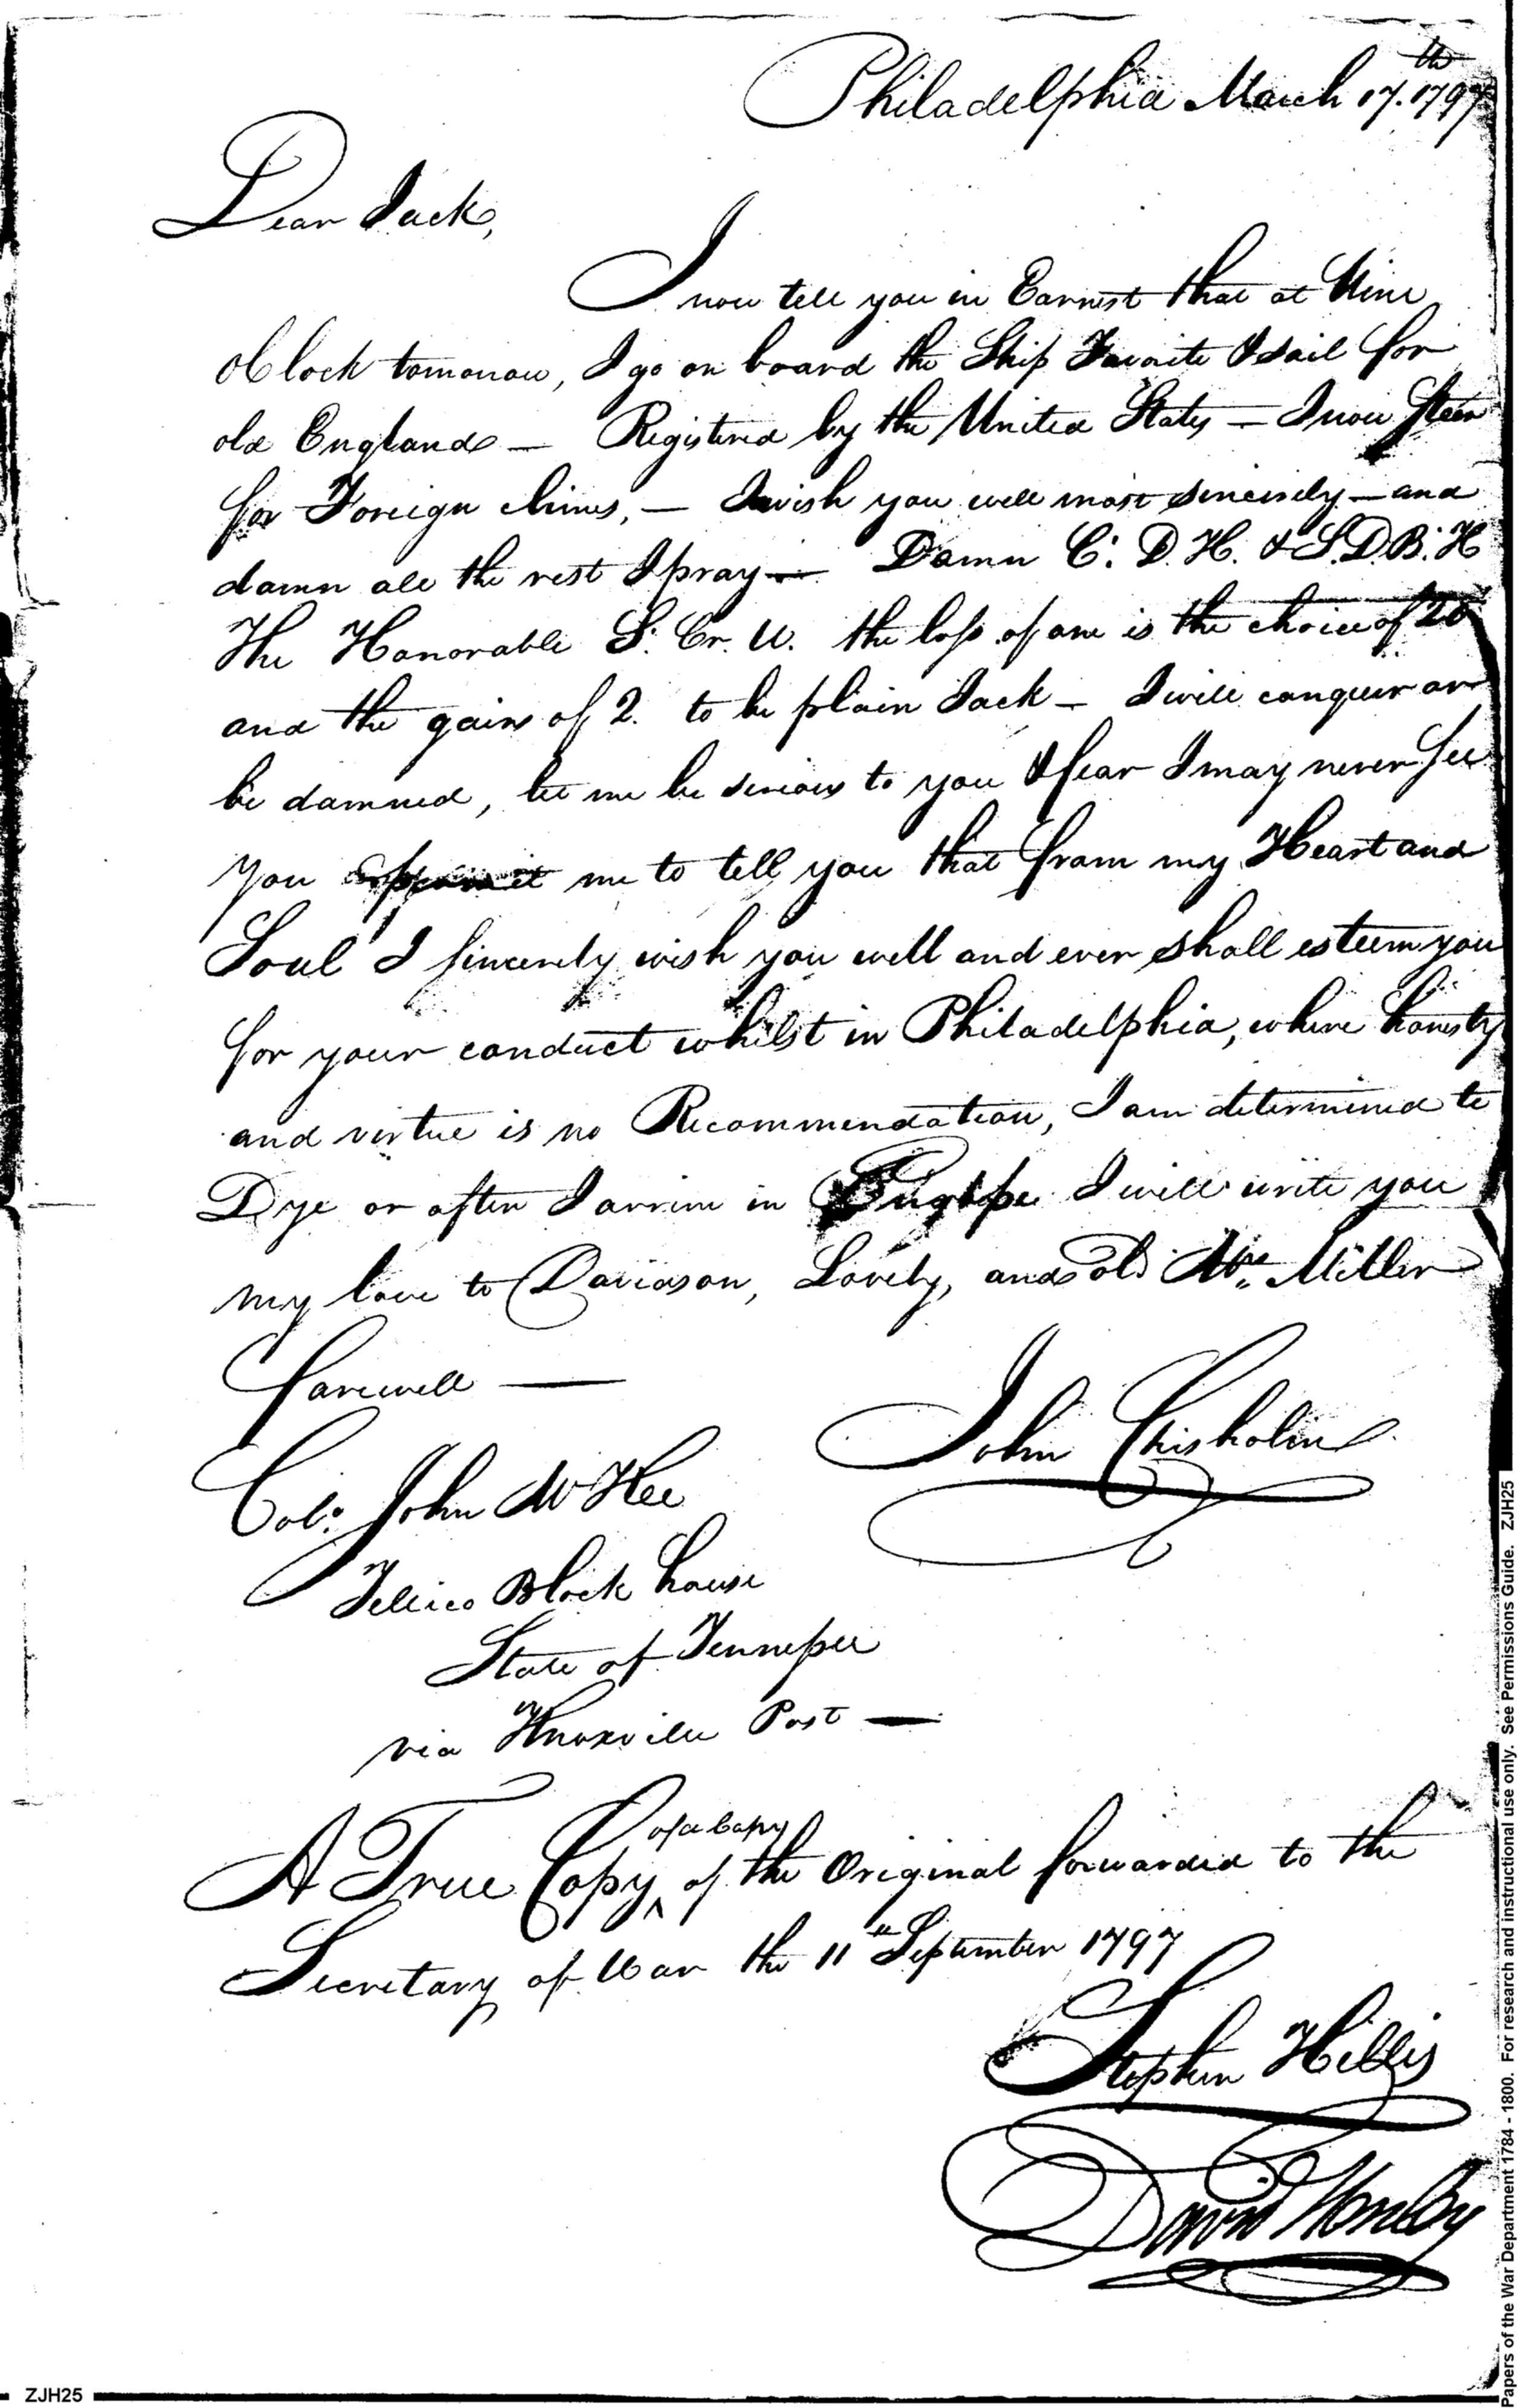 Philadelphia March 17.th 1797
Dear Jack,
I now tell you in Earnest that at Nine
oClock tomorrow, I go on board the Ship Favorite & sail for
old England — Registered by the United States — I now Steer
for Foreign climes, — I wish you well most sincerely — and
damn all the rest I pray — Damn C. D. H. & S. D. B. H
The Honorable S. Cr. U. the loss of one is the choice of 20
and the gain of 2. to be plain Jack — I will conquer or
be damned, let me be serious to you I fear I may never See
you permit me to tell you that from my Heart and
Soul I sincerely wish you well and ever shall esteem you
for your conduct whilst in Philadelphia, where honesty
and virtue is no Recommendation, I am determined to
Dye or after I arrive in I will write you
my love to Davidson, Lovely, and old Miller
farewell —
John Chisholm
Colo. John McKee
Tellico Block house
State of Tennessee
via Knoxville Post —
of a Copy
A True Copy ^ of the Original forwarded to the
Secretary of War the 11th September 1797
Stephen Hillis
David Henley
ZJH25
Papers of the War Department 1784 - 1800. For research and instructional use only. See Permissions Guide. ZJH25